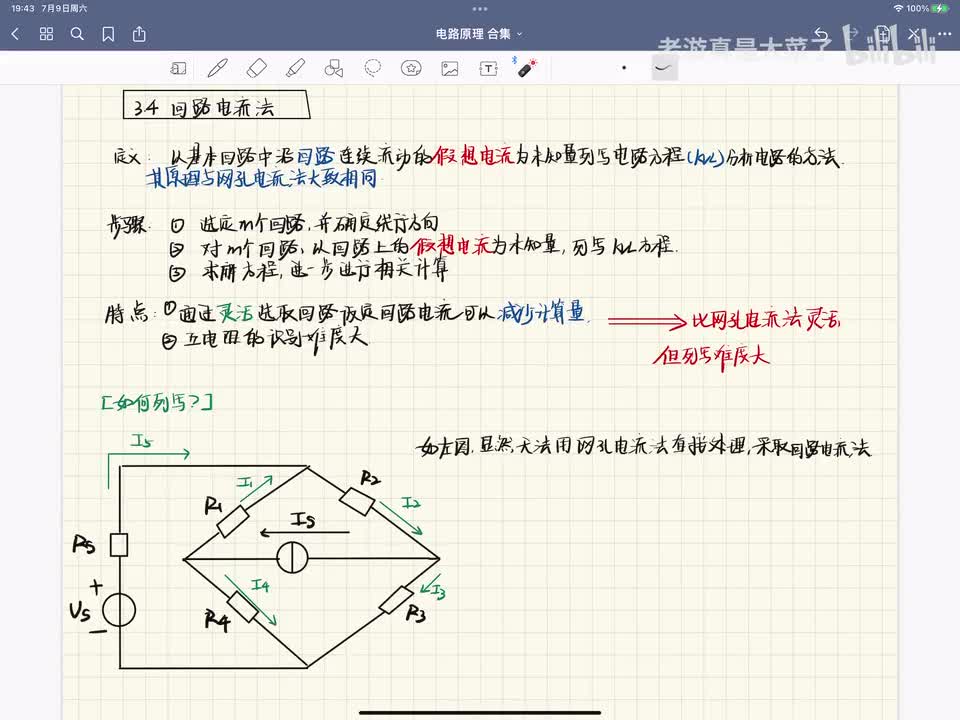 19:43 7月9日周六
100%
电路原理 合集
老游真是太菜了 bilibili
3.4 回路电流法
定义: 从基本回路中沿回路连续流动的假想电流为未知量列写电路方程(KVL)分析电路的方法.
其原因与网孔电流法大致相同
步骤: ① 选定m个回路,并确定绕行方向
② 对m个回路,以回路上的假想电流为未知量,列写KVL方程.
③ 求解方程,进一步进行相关计算
特点: ①通过灵活选取回路假定回路电流可以减少计算量
②互电阻的识别难度大
比网孔电流法灵活,
但列写难度大
[如何列写?]
如左图,显然无法用网孔电流法直接处理,采取回路电流法
I5
I1
R2
R1
I2
IS
R5
I4
I3
+
US
R4
R3